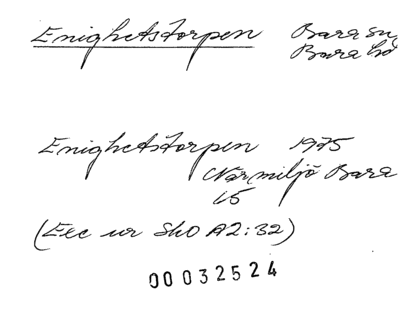 Enighetstorpen Bara sn
Bara hd
Enighetstorpen 1975
Närmiljö Bara
15
(Exc ur SkO A2:32)
00032524